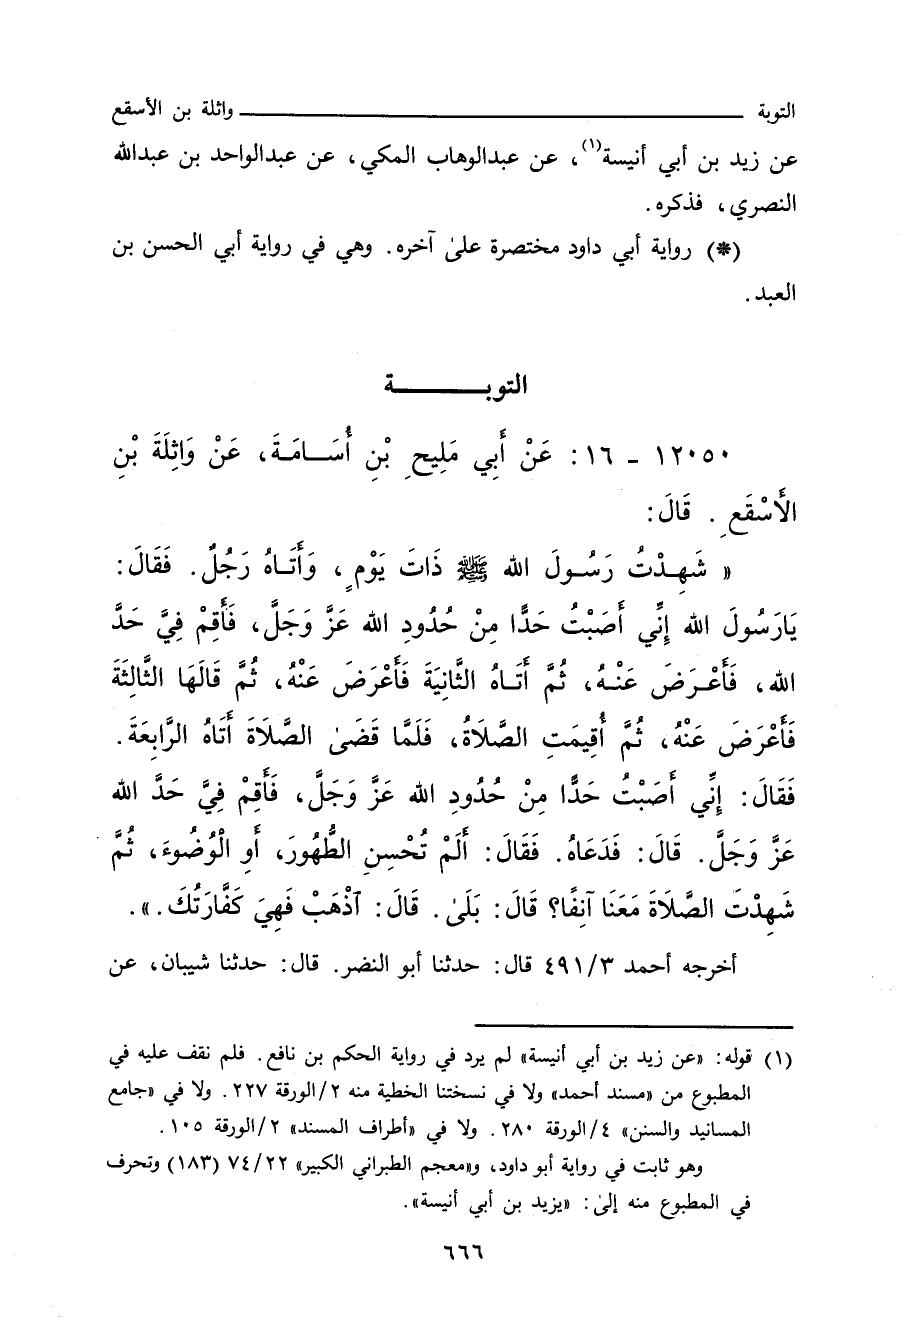 التوبة ــــــــــــــــــــ واثلة بن الأسقع
عن زيد بن أبي أنيسة(١)، عن عبدالوهاب المكي، عن عبدالواحد بن عبدالله
النصري، فذكره.
(*) رواية أبي داود مختصرة علىٰ آخره. وهي في رواية أبي الحسن بن
العبد.
التوبـــــــــة
١٢٠٥٠ - ١٦: عَنْ أَبِي مَلِيحِ بْنِ أُسَـامَـةَ، عَنْ وَاثِلَةَ بْنِ
الأَسْقَعِ. قَالَ:
« شَهِـدْتُ رَسُـولَ الله ﷺ ذَاتَ يَوْمٍ، وَأَتَـاهُ رَجُلٌ. فَقَالَ:
يَارَسُولَ الله إِنِّي أَصَبْتُ حَدًّا مِنْ حُدُودِ الله عَزَّ وَجَلَّ، فَأَقِمْ فِيَّ حَدَّ
الله، فَأَعْـرَضَ عَنْـهُ، ثُمَّ أَتَـاهُ الثَّانِيَةَ فَأَعْرَضَ عَنْهُ، ثُمَّ قَالَهَا الثَّالِثَةَ
فَأَعْرَضَ عَنْهُ، ثُمَّ أُقِيمَتِ الصَّلَاةُ، فَلَمَّا قَضَىٰ الصَّلَاةَ أَتَاهُ الرَّابِعَةَ.
فَقَالَ: إِنِّي أَصَبْتُ حَدًّا مِنْ حُدُودِ الله عَزَّ وَجَلَّ، فَأَقِمْ فِيَّ حَدَّ الله
عَزَّ وَجَلَّ. قَالَ: فَدَعَاهُ. فَقَالَ: أَلَمْ تُحْسِنِ الطُّهُورَ، أَوِ الْوُضُوءَ، ثُمَّ
شَهِدْتَ الصَّلَاةَ مَعَنَا آنِفًا؟ قَالَ: بَلَىٰ. قَالَ: آذْهَبْ فَهِيَ كَفَّارَتُكَ.».
أخرجه أحمد ٤٩١/٣ قال: حدثنا أبو النضر. قال: حدثنا شيبان، عن
(١) قوله: «عن زيد بن أبي أنيسة» لم يرد في رواية الحكم بن نافع. فلم نقف عليه في
المطبوع من «مسند أحمد» ولا في نسختنا الخطية منه ٢/الورقة ٢٢٧. ولا في «جامع
المسانيد والسنن» ٤/الورقة ٢٨٠. ولا في «أطراف المسند» ٢/الورقة ١٠٥.
وهو ثابت في رواية أبو داود، و«معجم الطبراني الكبير» ٧٤/٢٢ (١٨٣) وتحرف
في المطبوع منه إلىٰ: «يزيد بن أبي أنيسة».
٦٦٦